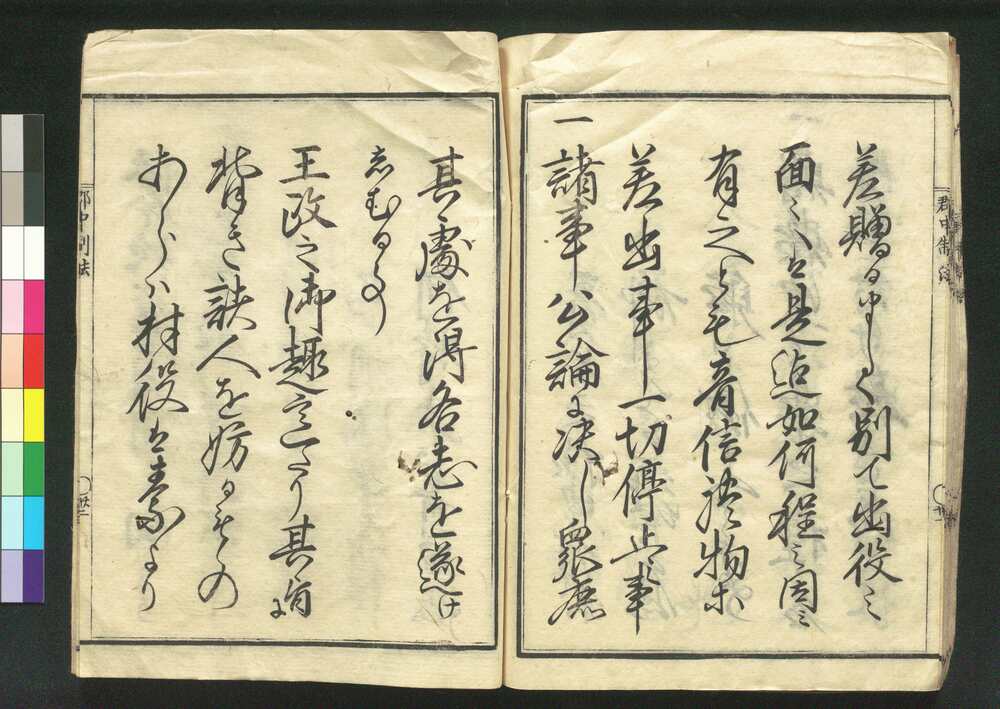 差贈るましく別て出役之
面々ハ是迄如何程之因ミ
有之とも音信禮物等
差出事一切停止事
一 諸事公論に决し衆庶
其處を得各志を遂け
志むるの
王政之御趣意たり其旨に
背き訴人を妨るもの
あらハ村役は素より
郡中制法
郡中制法
廿二